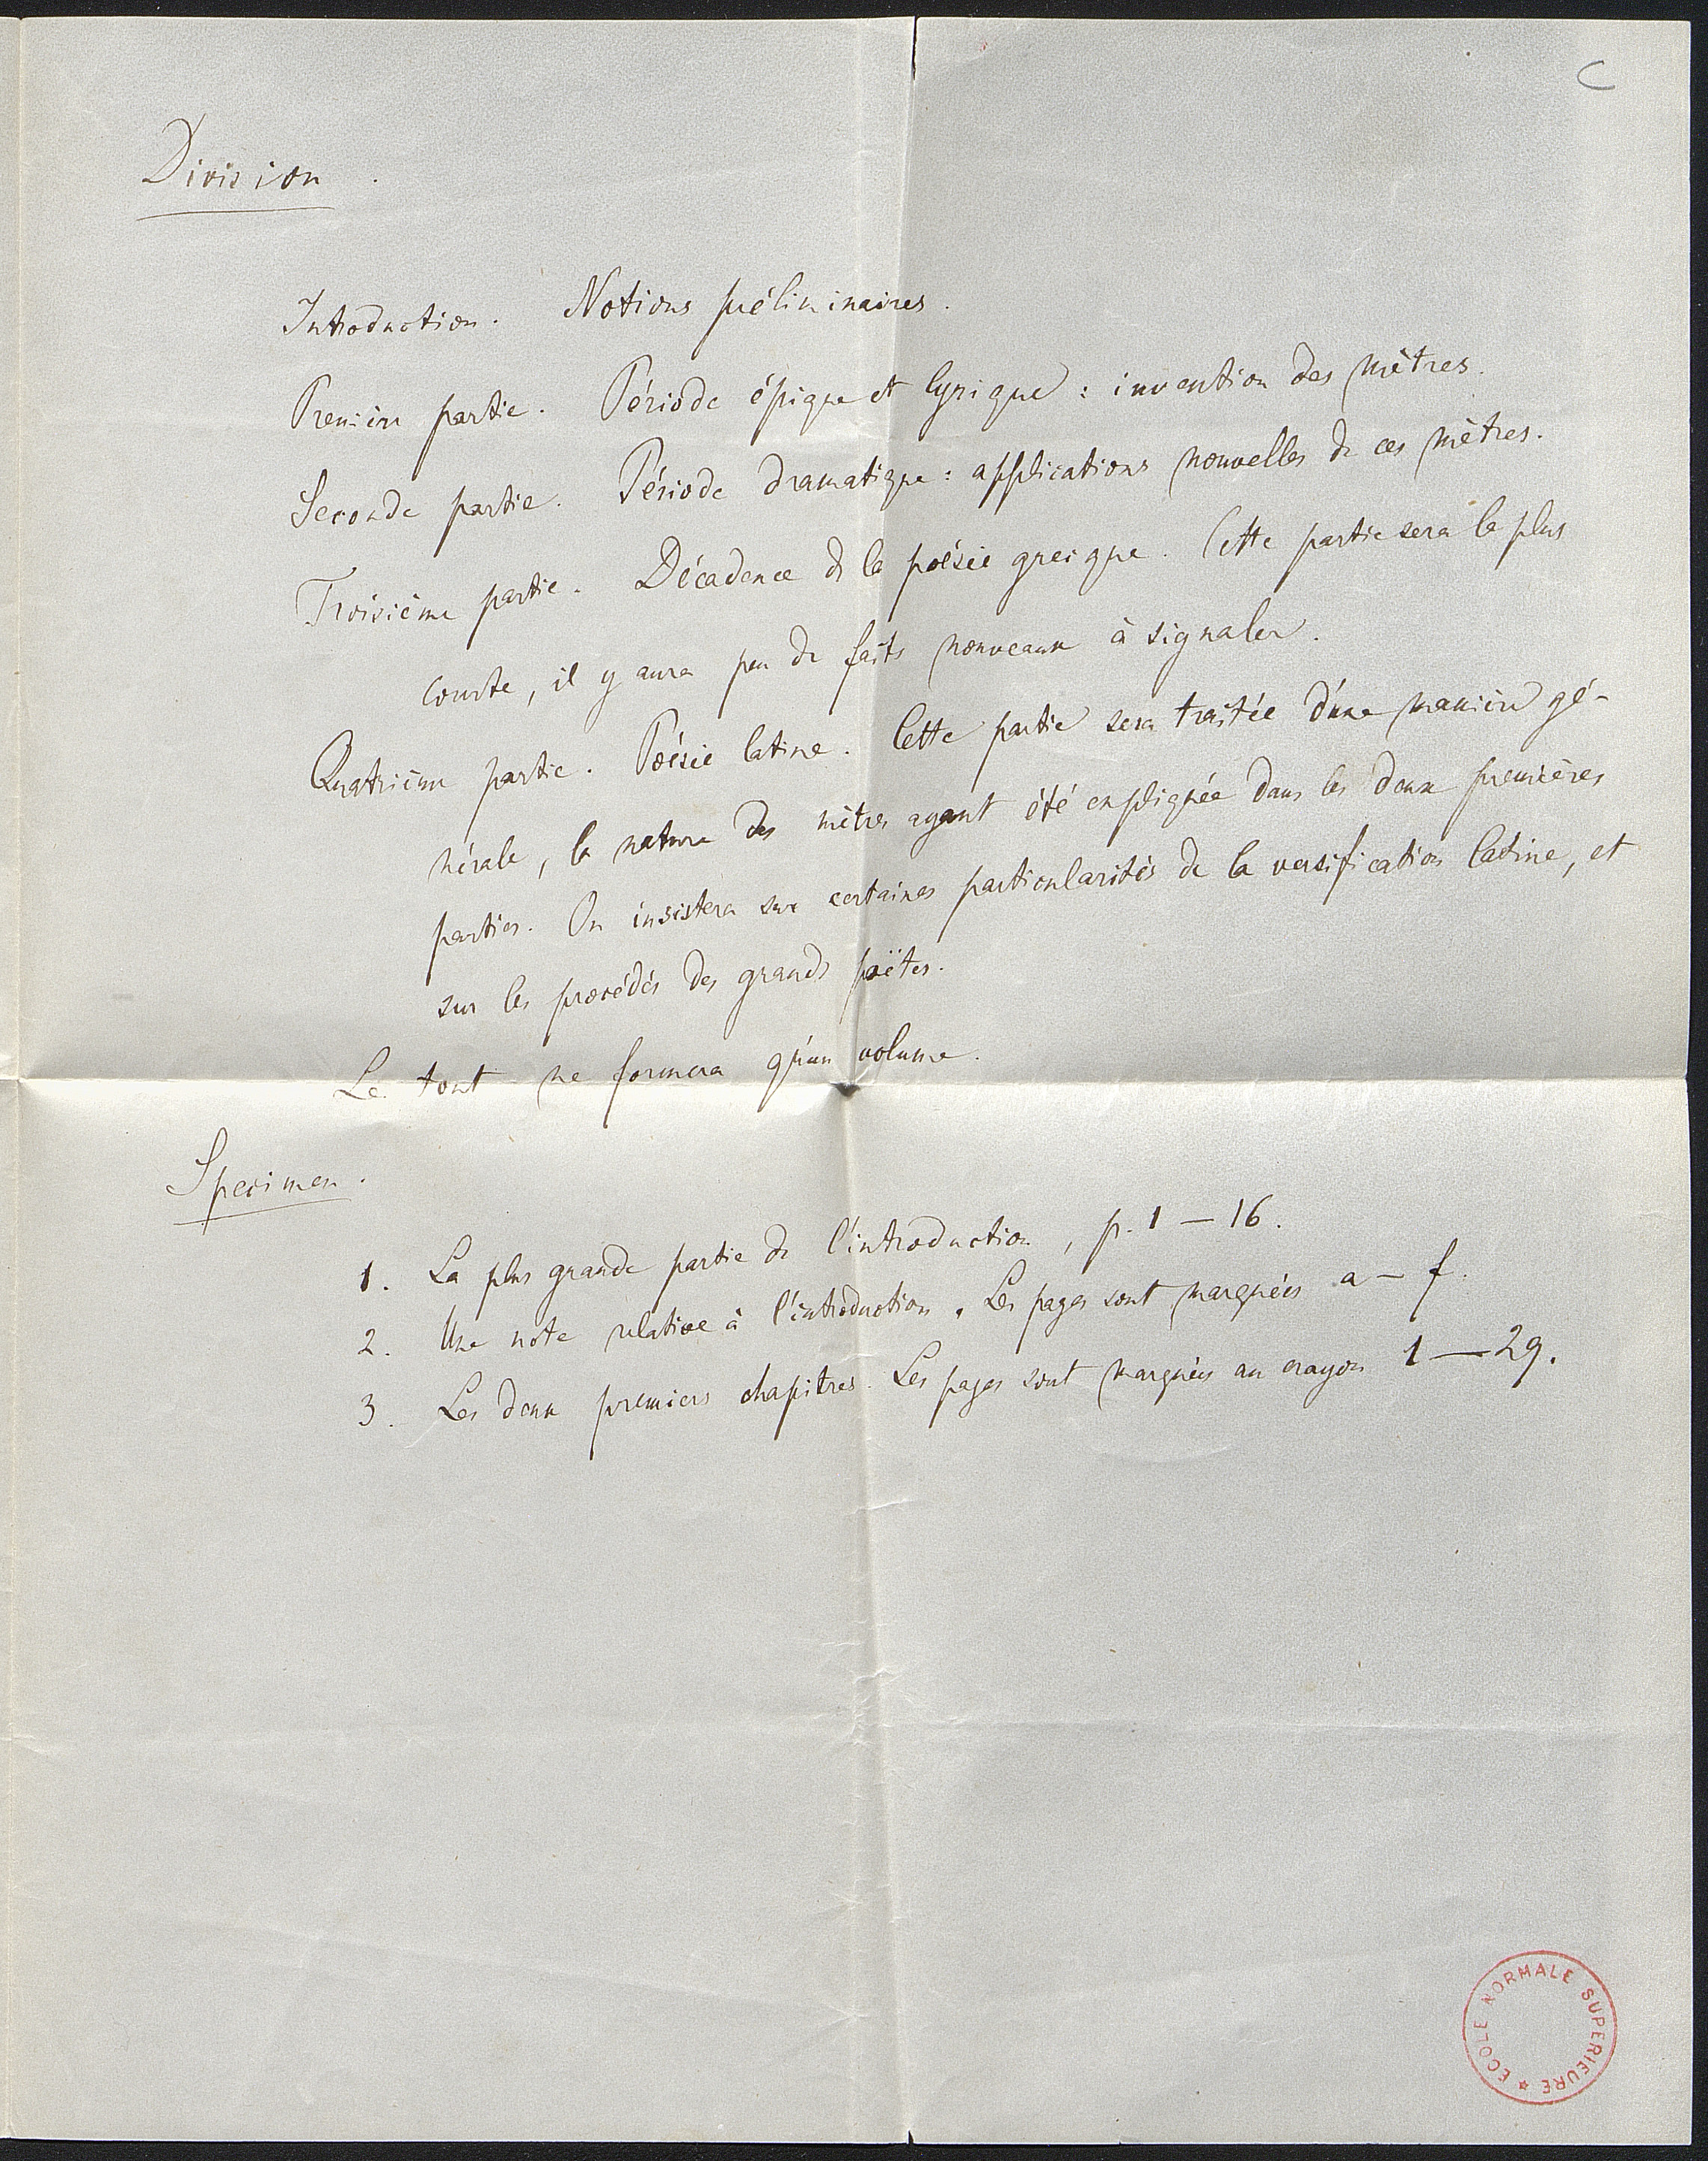 C
Division.
Introduction. Notions préliminaires.
Première partie. Période épique et lyrique : invention des mètres.
Seconde partie. Période dramatique : applications nouvelles de ces mètres.
Troisième partie. Décadence de la poésie grecque. Cette partie sera la plus
courte, il y aura peu de faits nouveaux à signaler.
Quatrième partie. Poésie latine. Cette partie sera traitée d'une manière gé-
nérale, la nature des mètres ayant été expliquée dans les deux premières
parties. On insistera sur certaines particularités de la versification latine, et
sur les procédés des grands poëtes.
Le tout ne formera qu'un volume.
Specimen.
1. La plus grande partie de l'introduction, p. 1 — 16.
2. Une note relative à l'introduction. Les pages sont marquées a — f.
3. Les deux premiers chapitres. Les pages sont marquées au crayon 1 — 29.
ECOLE NORMALE SUPERIEURE